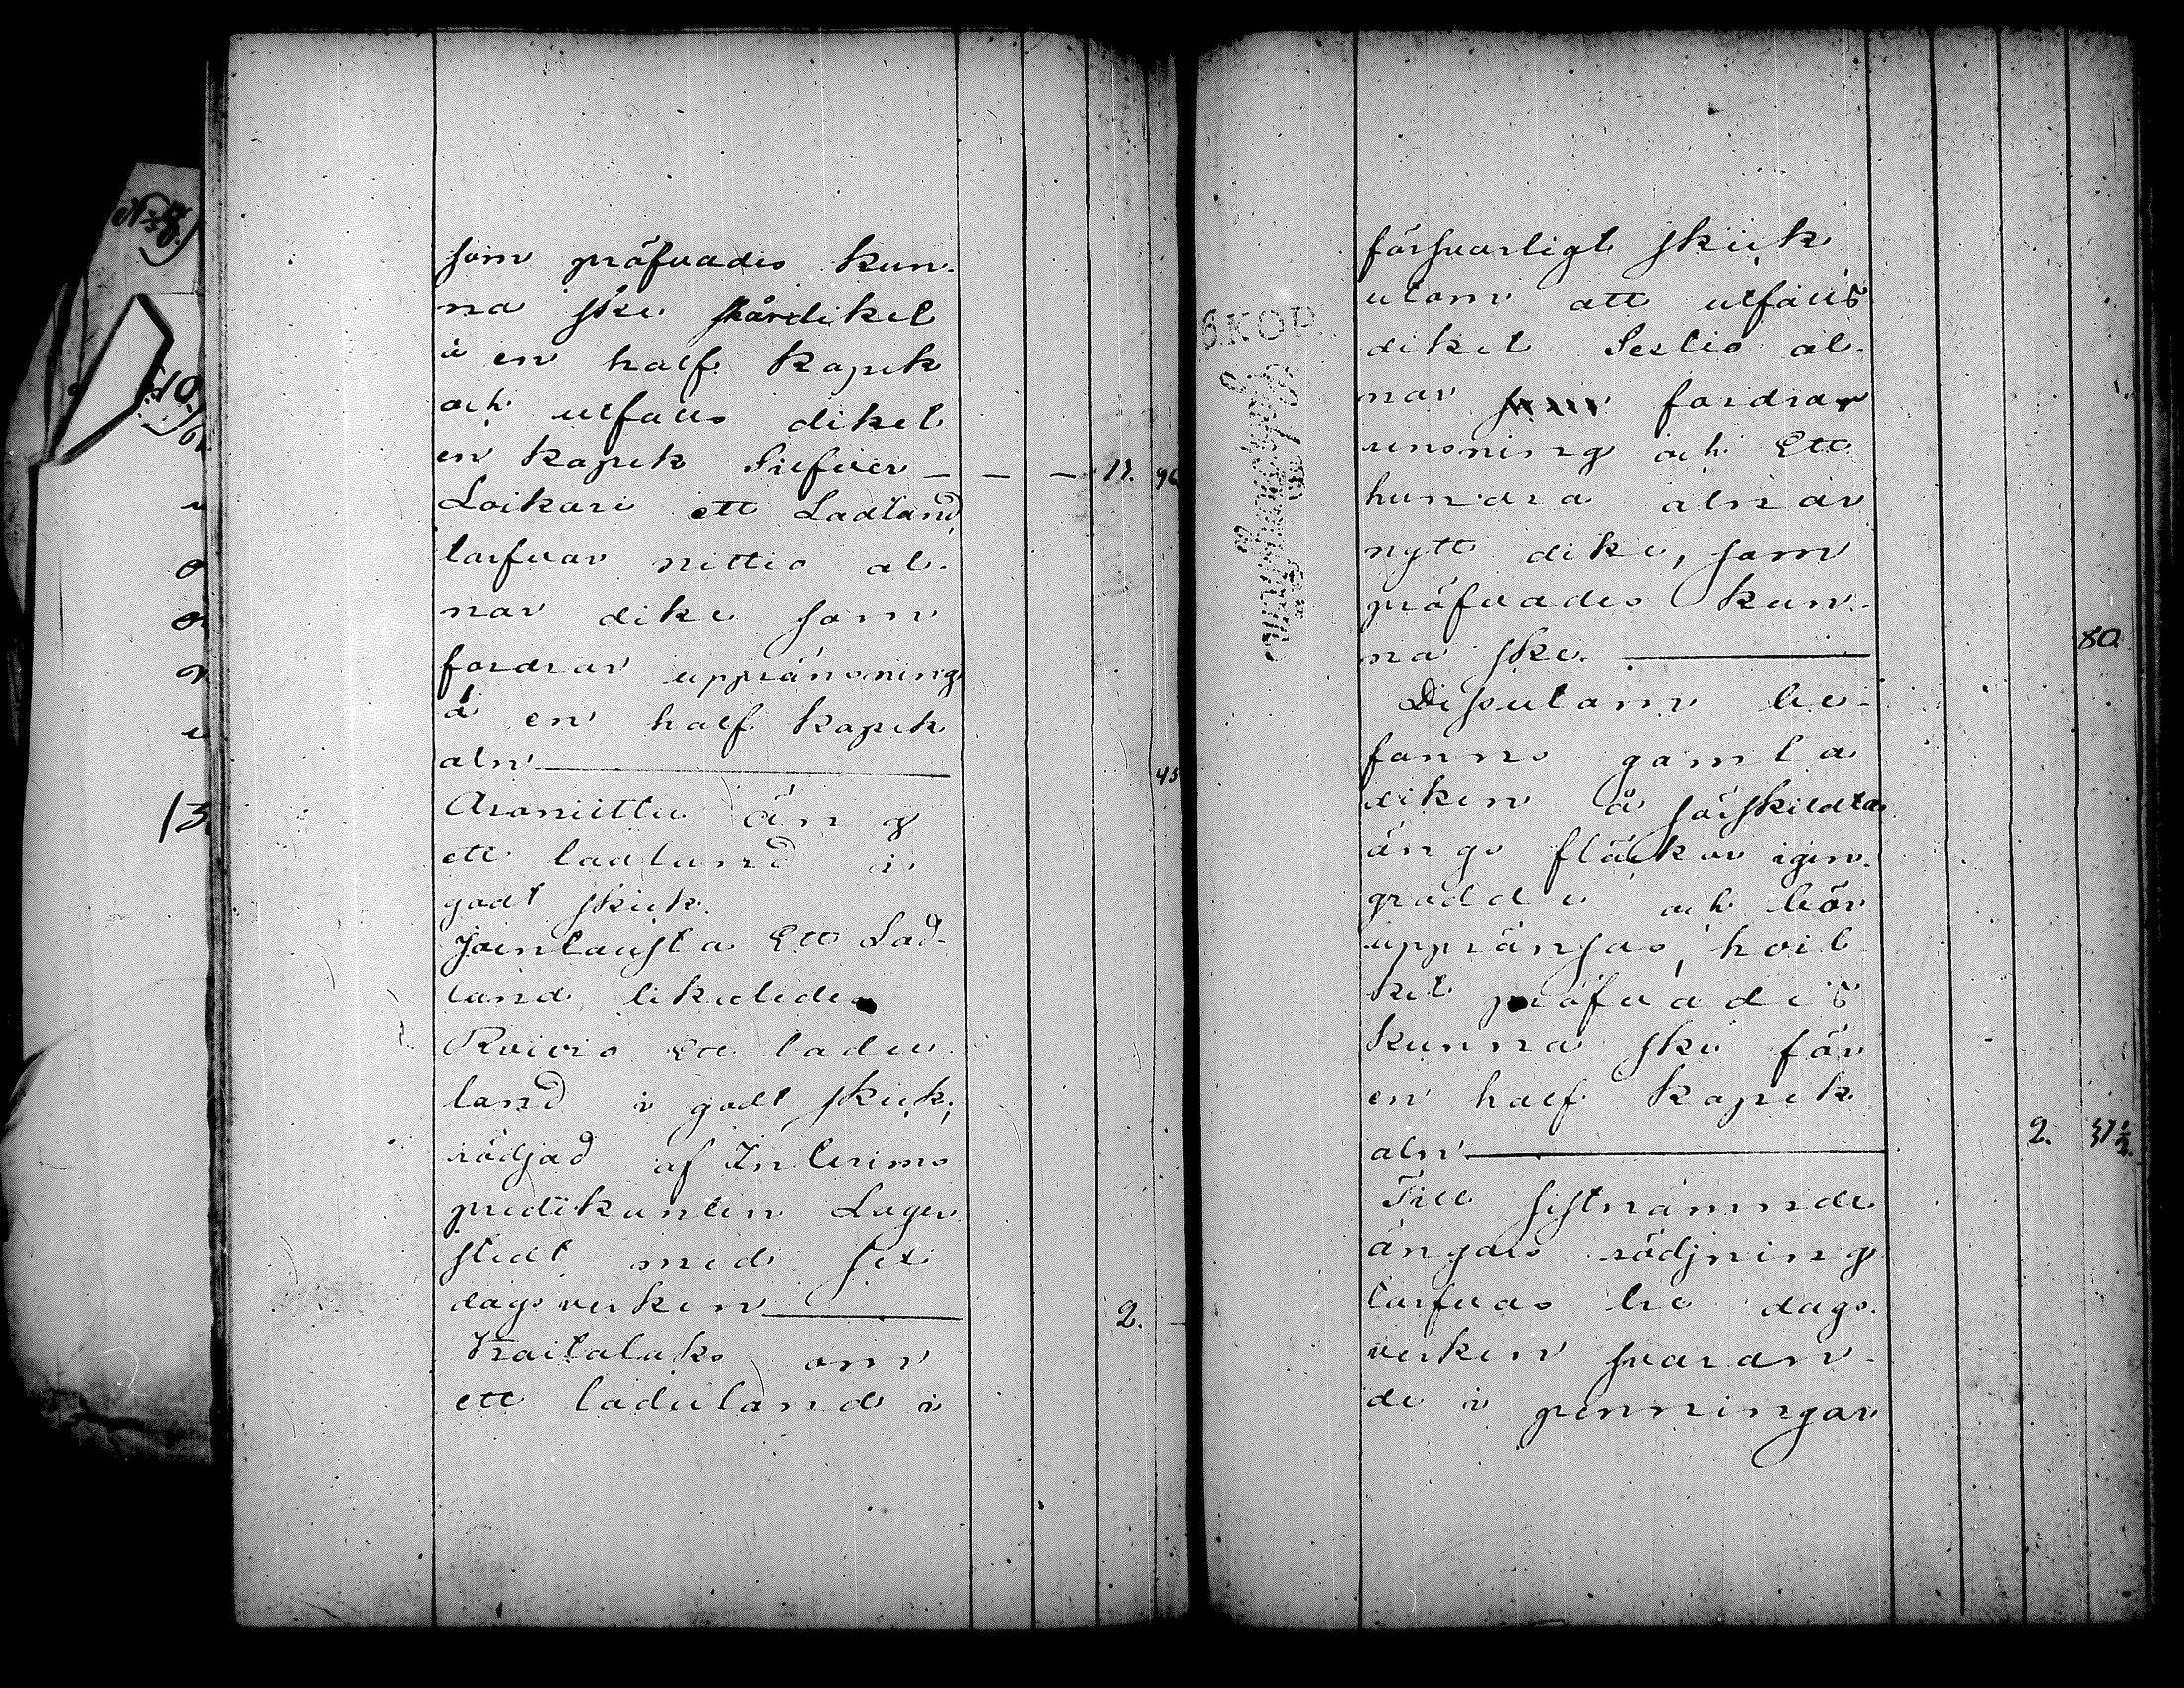 som pröfvades kun-
na ske skärdiket
à en half kopek
och utfalls diket
en kopek Silfver — — — 11. 96
Loikari ett Ladland
tarfvar nittio al-
nar dike som
fordrar uppränsning
á en half kopek
aln — 45
Aroniittu äng
ett ladland i
godt skick.
Joenlausta Ett Lad-
land, likaledes
Roivio Ett ladu
land i godt skick,
rödjad af Interims
predikanten Lager
stedt med sex
dagsverken — 2. —
Kaitalaks om
ett laduland i
försvarligt skick
utom att utfalls
diket Sextio al-
nar fordrar
rensning och Ett
hundra alnar
nytt dike, som
pröfvades kun-
na ske. — 80.
Dessutom be-
fanns gamla
diken å särskildta
ängs fläckar igen-
grodde och bör
uppränsas, hvil
ket pröfvades
kunna ske för
en half kopek
aln — 2. 37½.
Till sistnämnde
ängars rödjning
tarfvas tre dags-
verken svaran-
de i penningar
SKOP.
No 8.
10.
13.